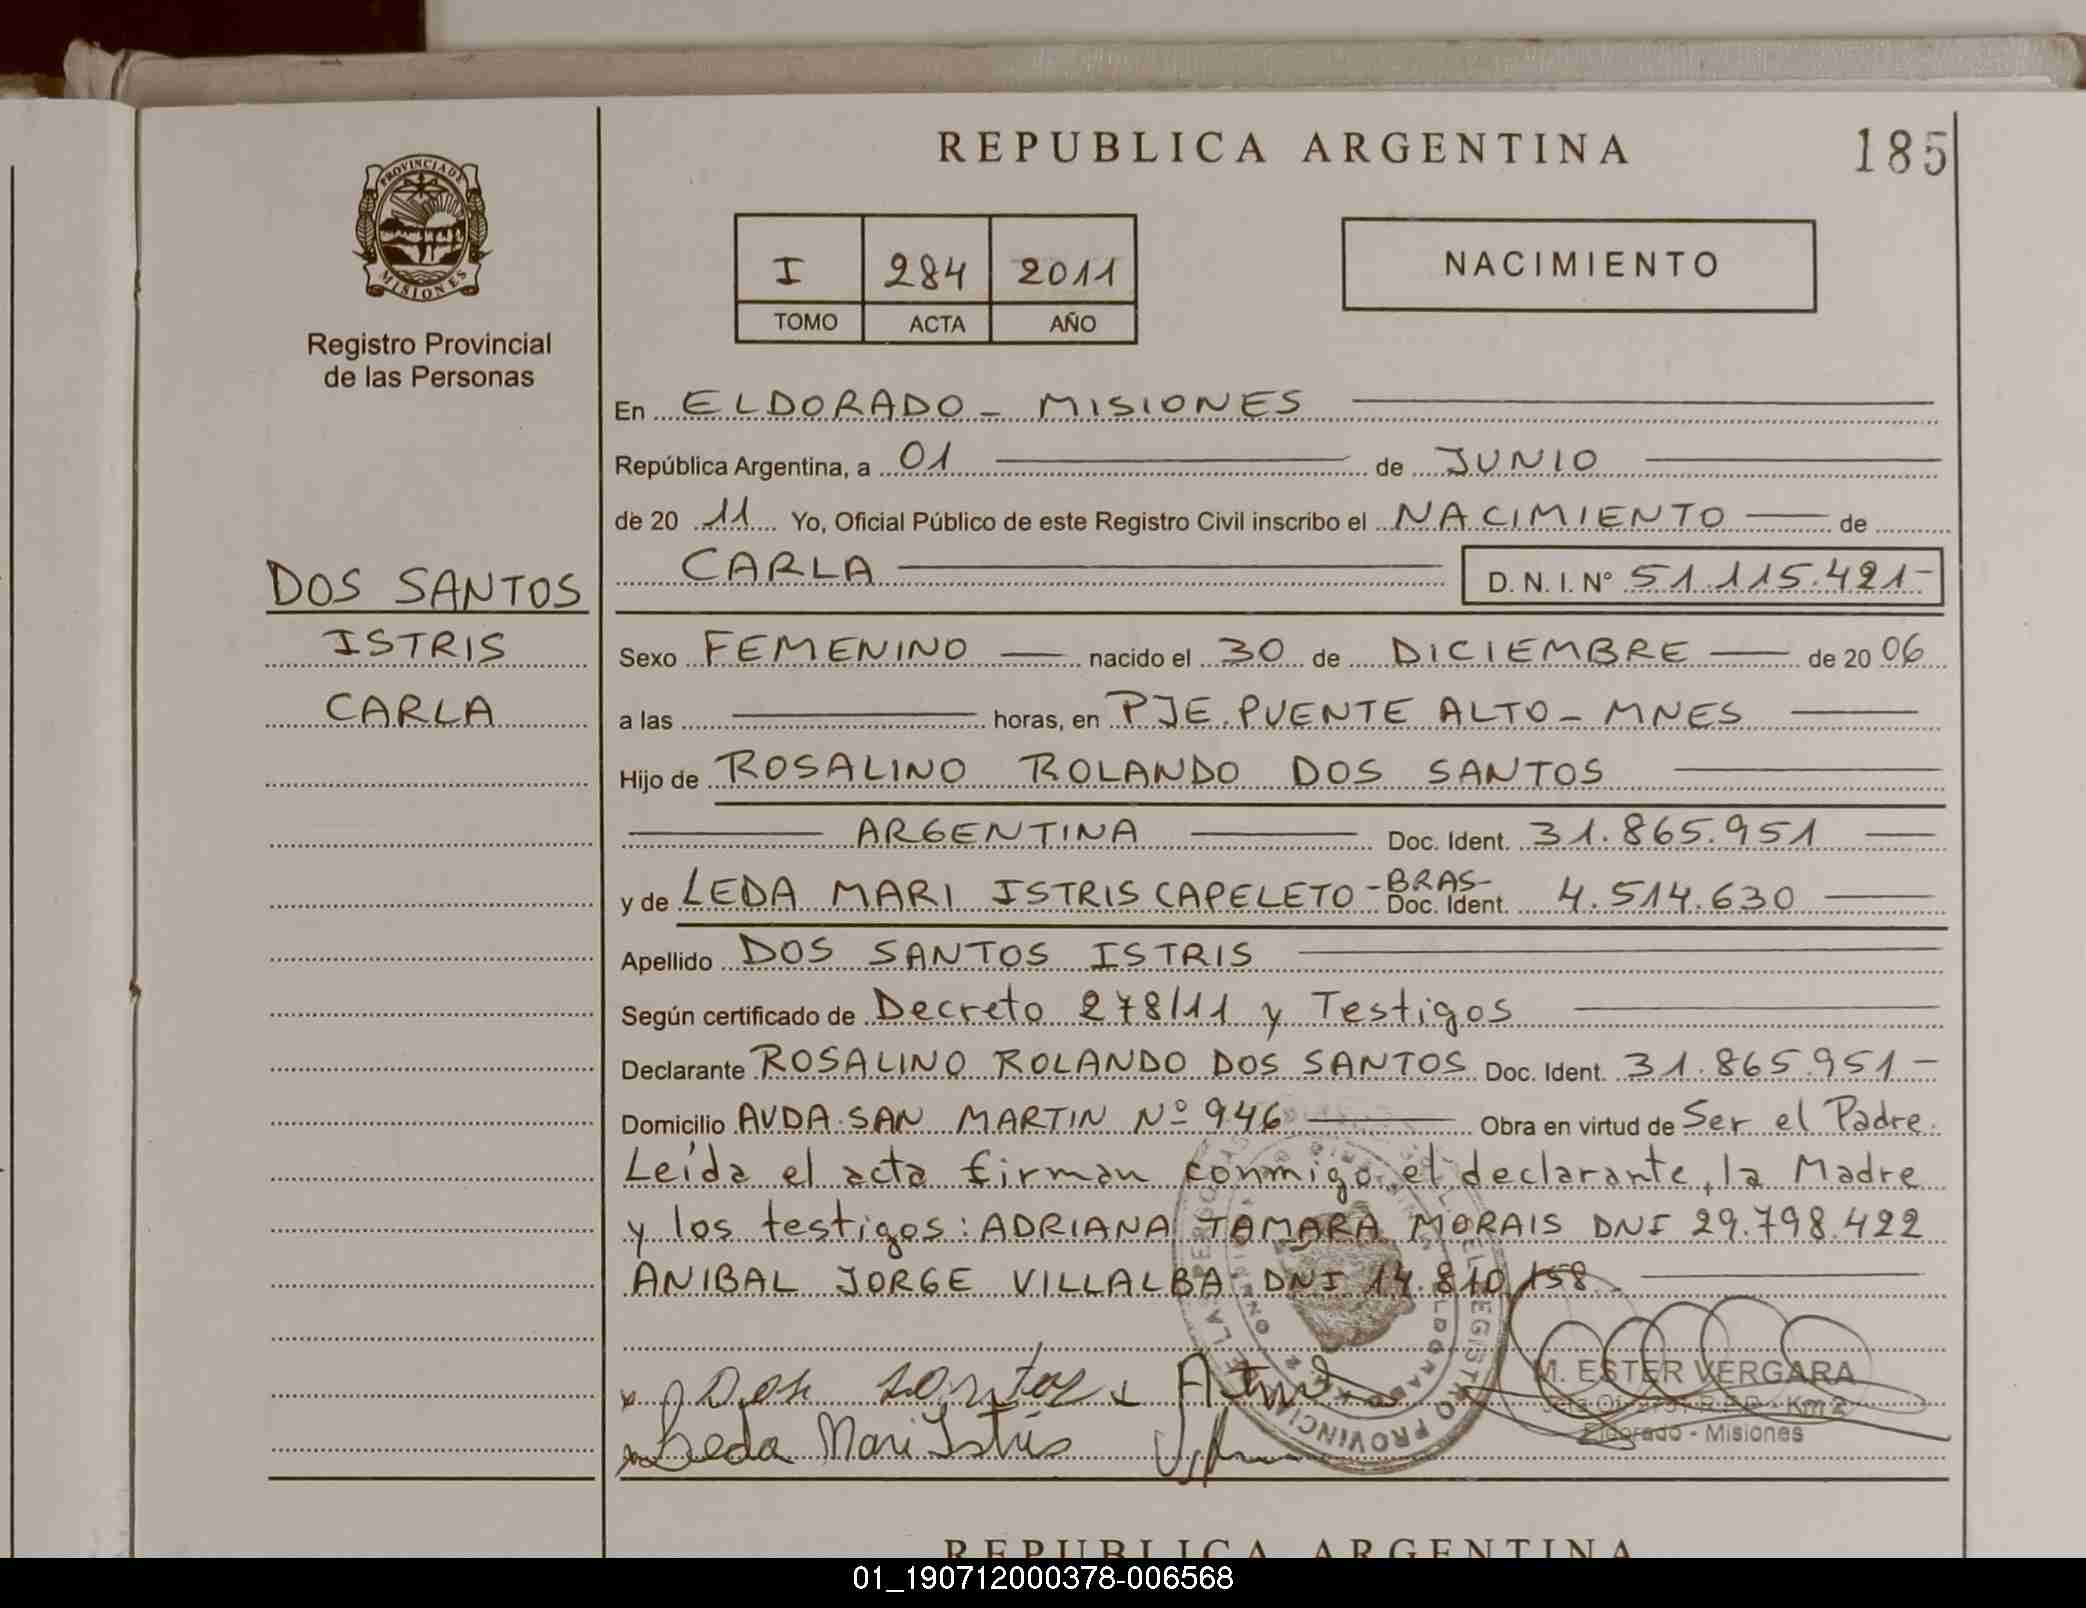 REPUBLICA ARGENTINA
185
PROVINCIA DE
MISIONES
Registro Provincial
de las Personas
I 284 2011
TOMO ACTA AÑO
NACIMIENTO
En ELDORADO - MISIONES
República Argentina, a 01 de JUNIO
de 20 11 Yo, Oficial Público de este Registro Civil inscribo el NACIMIENTO de
CARLA D. N. I. Nº 51.115.421-
DOS SANTOS
ISTRIS
CARLA
Sexo FEMENINO nacido el 30 de DICIEMBRE de 20 06
a las horas, en PJE. PUENTE ALTO - MNES
Hijo de ROSALINO ROLANDO DOS SANTOS
ARGENTINA Doc. Ident. 31.865.951
y de LEDA MARI ISTRIS CAPELETO - BRAS- Doc. Ident. 4.514.630
Apellido DOS SANTOS ISTRIS
Según certificado de Decreto 278/11 y Testigos
Declarante ROSALINO ROLANDO DOS SANTOS Doc. Ident. 31.865.951-
Domicilio AVDA. SAN MARTIN Nº 946 Obra en virtud de Ser el Padre.
Leída el acta firman conmigo el declarante, la Madre
y los testigos: ADRIANA TAMARA MORAIS DNI 29.798.422
ANIBAL JORGE VILLALBA DNI 14.810.158.
Dos santos
M. ESTER VERGARA
R.P.P. - Km 2
Eldorado - Misiones
Leda Mari Istris
REPUBLICA ARGENTINA
01_190712000378-006568